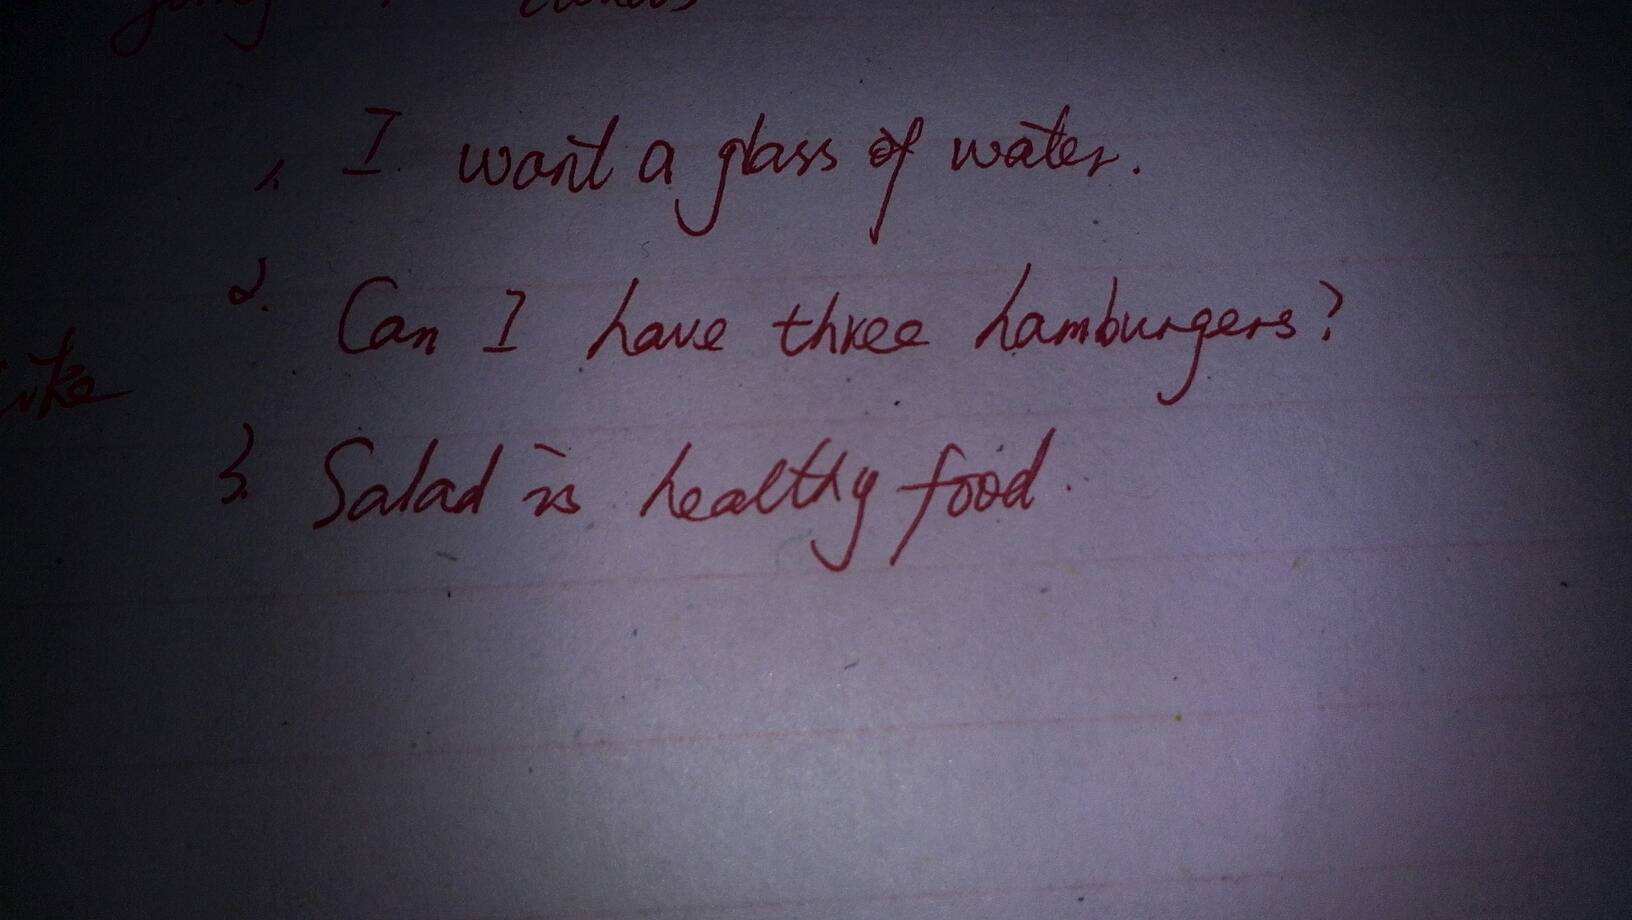 1. I want a glass of water.
2. Can I have three hamburgers?
3. Salad is healthy food.